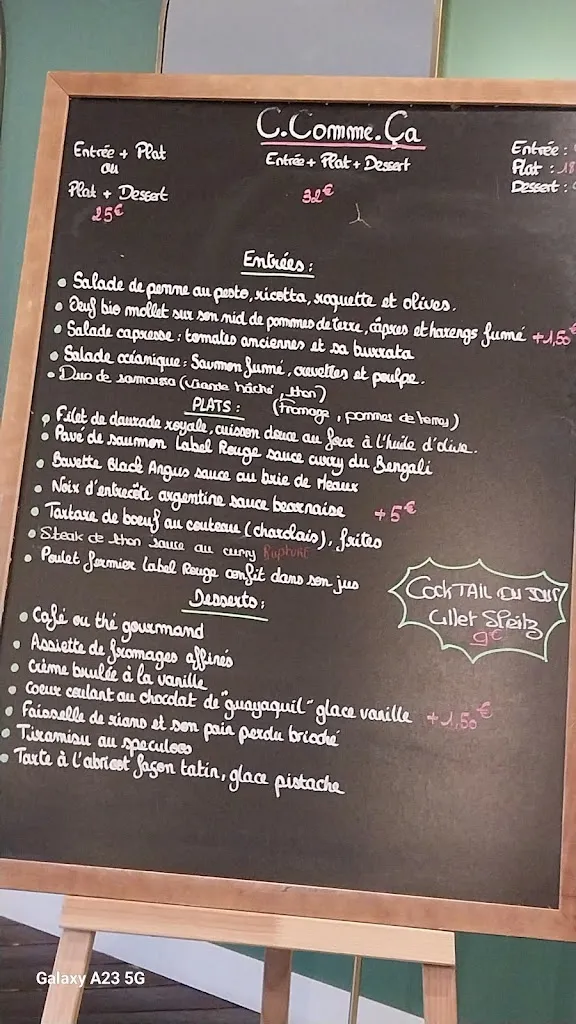 C.Comme.Ça
Entrée + Plat
ou
Plat + Dessert
25€
Entrée + Plat + Dessert
32€
Entrée :
Plat : 18
Dessert :
Entrées :
• Salade de penne au pesto, ricotta, roquette et olives.
• Oeuf bio mollet sur son nid de pommes de terre, câpres et harengs fumé +1,50
• Salade capresse : tomates anciennes et sa burrata
• Salade océanique : Saumon fumé, crevettes et poulpe.
• Duo de samoussa (viande hâché, thon)
(fromage, pommes de terre)
PLATS :
• Filet de daurade royale, cuisson douce au four à l'huile d'olive.
• Pavé de saumon Label Rouge sauce curry du Bengali
• Bavette Black Angus sauce au brie de Meaux
• Noix d'entrecôte argentine sauce bearnaise +5€
• Tartare de boeuf au couteau (charolais), frites
• Steak de thon sauce au curry Rupture
• Poulet fermier Label Rouge confit dans son jus
Desserts :
• Café ou thé gourmand
• Assiette de fromages affinés
• Crème brulée à la vanille
• Coeur coulant au chocolat de "guayaquil" glace vanille +1,50€
• Faisselle de rians et son pain perdu brioché
• Tiramisu au speculoos
• Tarte à l'abricot façon tatin, glace pistache
COCKTAIL DU JOUR
Lillet Spritz
9€
Galaxy A23 5G